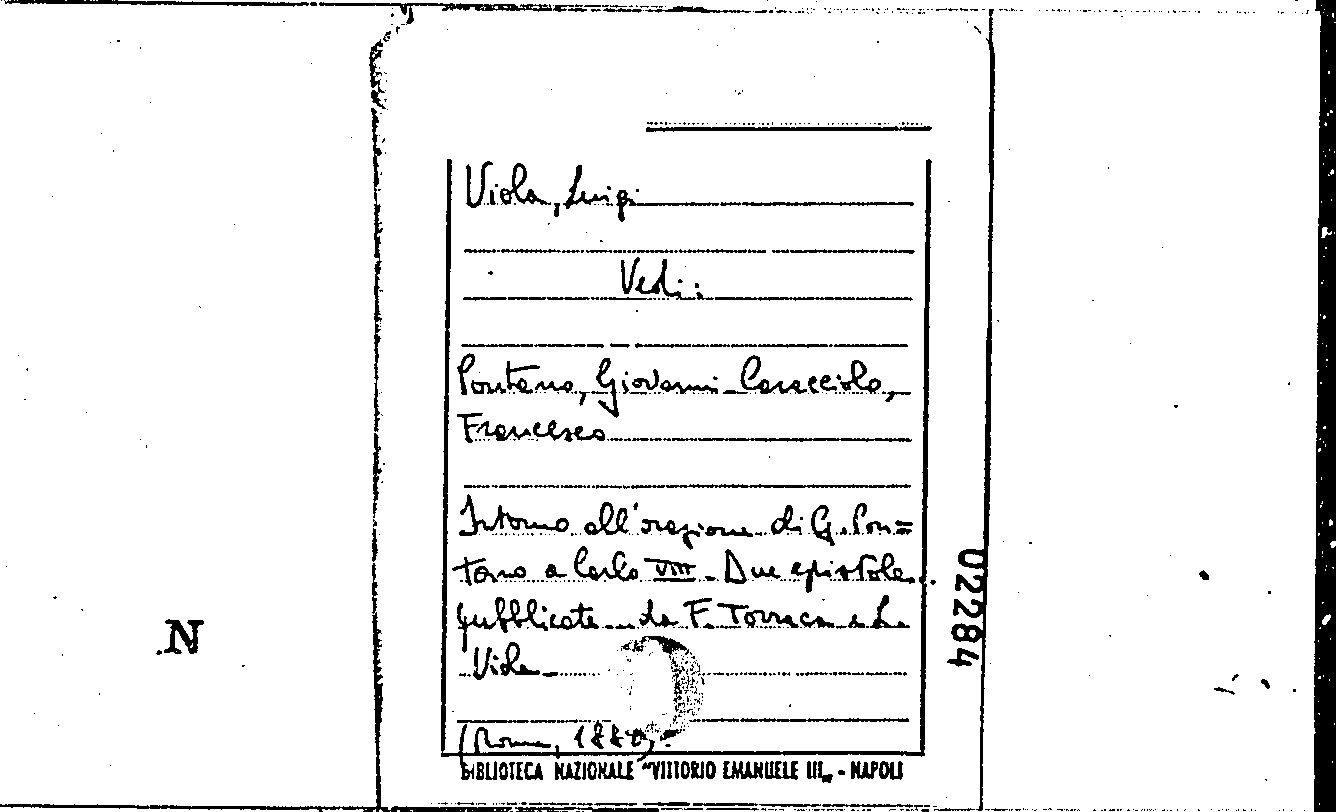 Viola, Luigi
Vedi:
Pontano, Giovanni - Caracciolo,
Francesco
Intorno all'orazione di G. Pon=
tano a Carlo VIII - Due epistole
pubblicate da F. Torraca e L.
Viola
(Roma, 1880).
BIBLIOTECA NAZIONALE "VITTORIO EMANUELE III„ - NAPOLI
02284
N